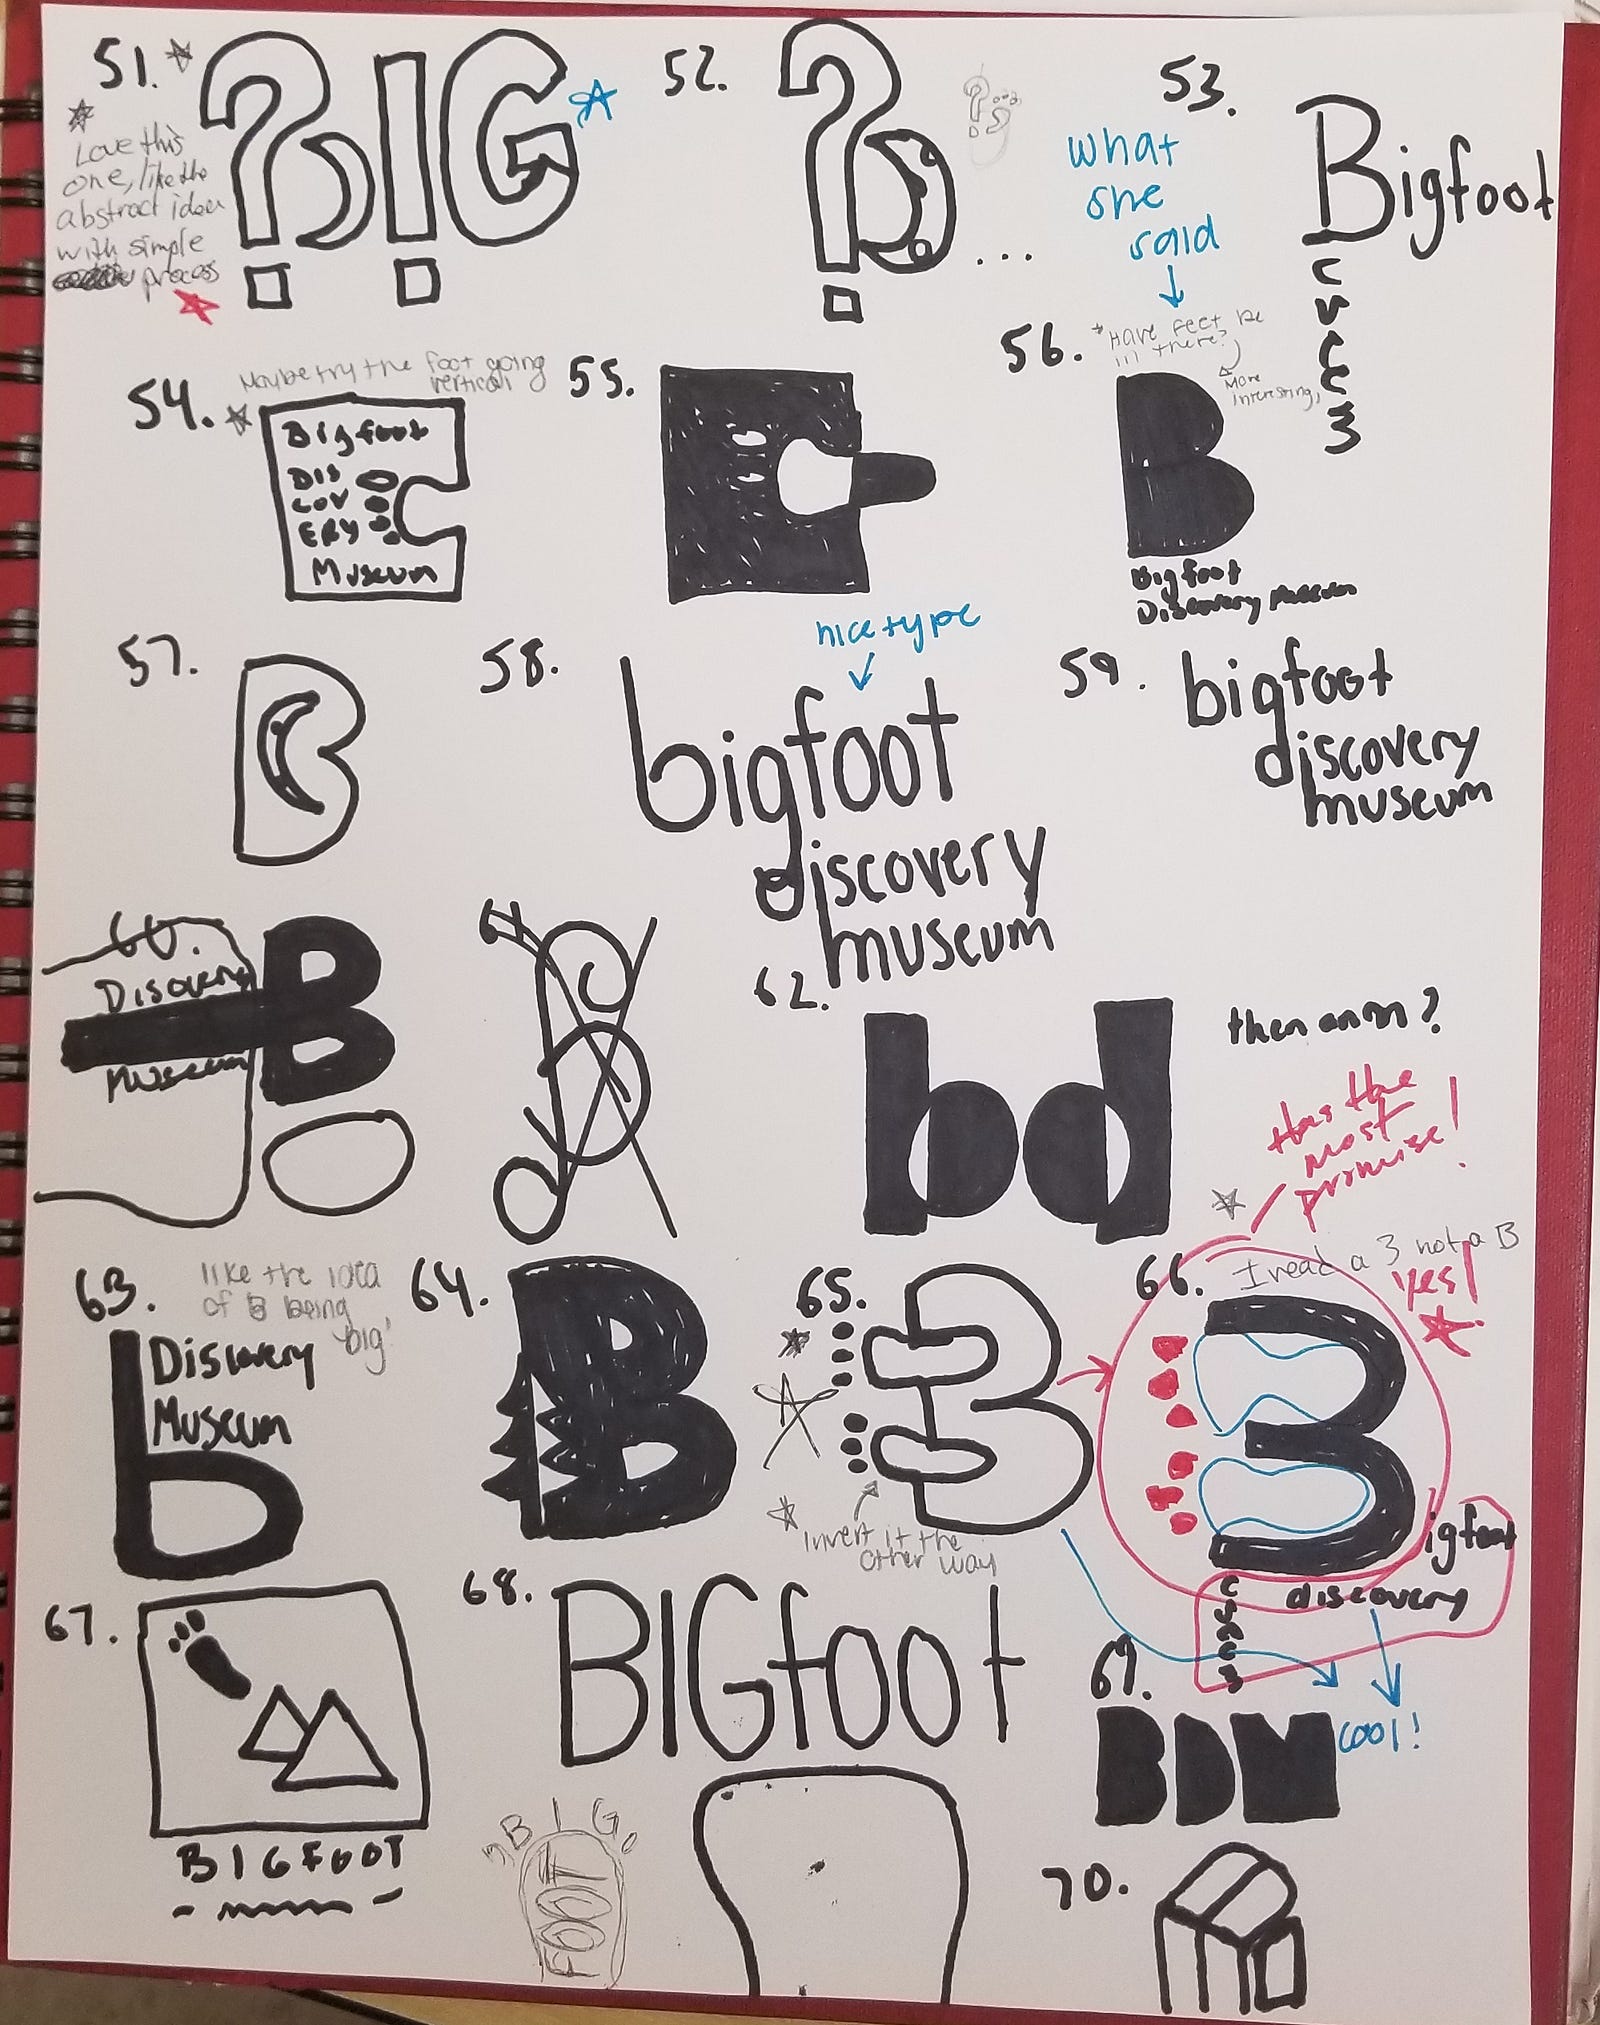 51.
?BIG
Love this
one, like the
abstract idea
with simple
process
52.
?B...
53.
Bigfoot
what
she
said
54.
Maybe try the foot going
vertical
Bigfoot
DIS
COV
ERY
Museum
55.
56.
*Have feet be
in there?
More
interesting,
B
Bigfoot
Discovery Museum
57.
B
58.
nice type
bigfoot
discovery
museum
59.
bigfoot
discovery
museum
60.
Discovery
Museum
B
61
62.
bd
then an m?
Has the
most
promise!
63.
like the idea
of B being
'big'
b
Discovery
Museum
64.
B
65.
B
Invert it the
other way
66.
I read a 3 not a B
yes!
igfoot
discovery
67.
BIGFOOT
68.
BIGfoot
BIG
FOOT
69.
BDM
cool!
70.